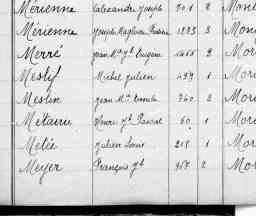 Mérienne Alexandre Joseph 701 2 Mont
Mérienne Joseph 1223 3 Mon
Merré Jean Mie Jh Eugène 1466 2 Mor
Meslif Michel Julien 499 1 Mor
Meslin Jean Mie 740 2 Mor
Métairie Henri Jh Pascal 60 1 Mor
Métié Julien Louis 215 1 Mor
Meyer François Jh 957 2 Mor